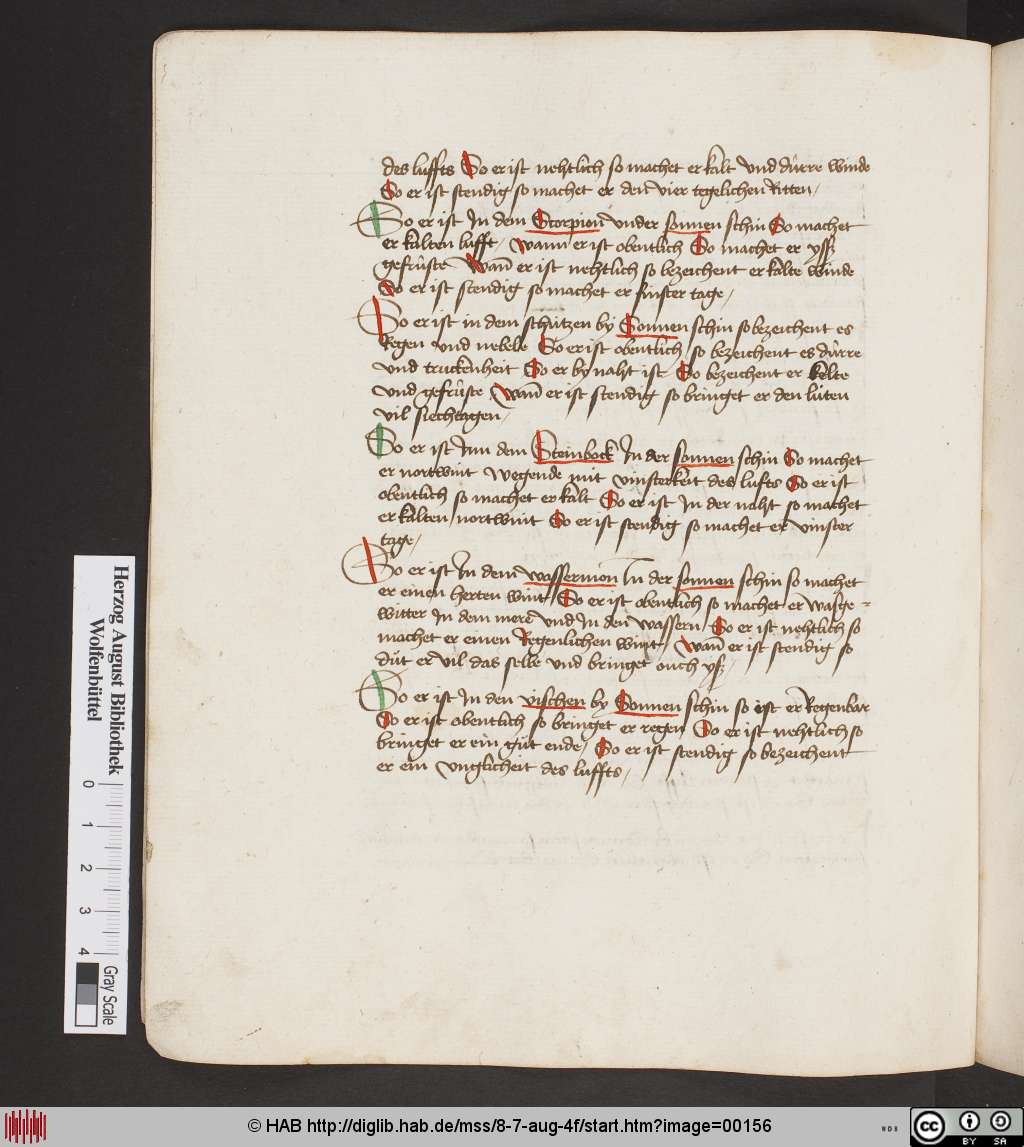 des luffts So er ist nehtlich so machet er kalt vnd dürre winde
So er ist stendig so machet er den vier tegelichen Ritten /
So er ist In dem Scorpion vnder sonnen schin So machet
er kalten lufft / wann er ist obentlich So machet er yß
gefrüste Wañ er ist nehtlich so bezeichent er kalte winde
So er ist stendig so machet er finster tage /
So er ist in dem schützen by Sonnen schin so bezeichent es
Regen vnd nebele So er ist obentlich so bezeichent es dürre
vnd truckenheit So er by naht ist So bezeichent er kelte
vnd gefrüste / wañ er ist stendig so bringet er den lüten
vil siechtagen /
So er ist Inn dem Steinbock In der sonnen schin So machet
er nortwint wegende mit vinsterkeit des lufts So er ist
obentlich so machet er kalt So er ist In der naht so machet
er kalten nortwint So er ist stendig so machet er vinster
tage /
So er ist In dem wasserman In der sonnen schin so machet
er einen herten wint / So er ist obentlich so machet er wasge=
witter In dem mere vnd In den wassern / So er ist nehtlich so
machet er einen Regenlichen wint / Wañ er ist stendig so
düt er vil das selbe vnd bringet ouch yß /
So er ist In den vischen by Sonnen schin so ist er Regenbar
So er ist obentlich so bringet er regen So er ist nehtlich so
bringet er ein güt ende / So er ist stendig so bezeichent
er ein vnglicheit des luffts /
Herzog August Bibliothek
Wolfenbüttel
0 1 2 3 4
Gray Scale
© HAB http://diglib.hab.de/mss/8-7-aug-4f/start.htm?image=00156
WDB
cc BY SA